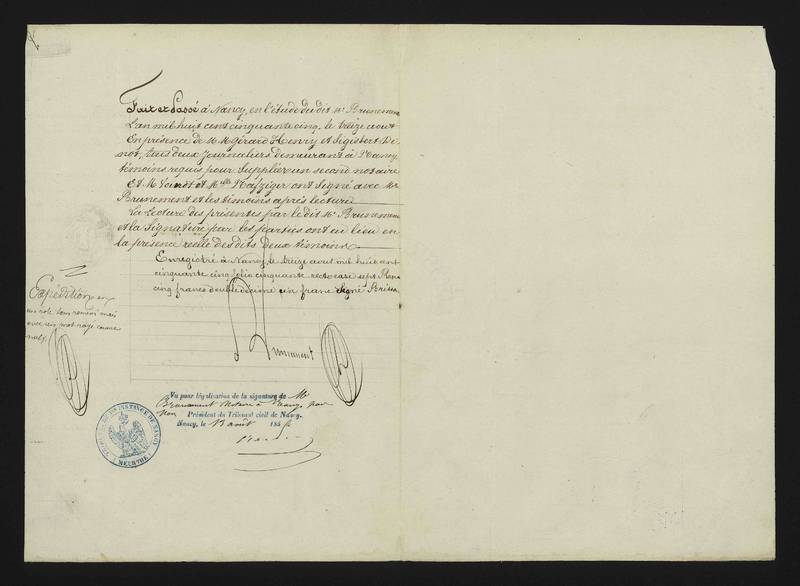 Fait et Passé à Nancy, en l'étude du dit Me Brunement
L'an mil huit cent cinquante cinq, le treize aout
En présence de M M Gérard Henry et Sigisbert De
not, tous deux Journaliers demeurant à Nancy
témoins requis pour suppléer un second notaire
Et M Voirdt et Mlle Nafziger ont signé avec Me
Brunement et les témoins après lecture
La Lecture des présentes par le dit Me Brunement
et la signature par les parties ont eu lieu en
la présence réelle des dits deux témoins
Enregistré à Nancy, le treize aout mil huit cent
cinquante cinq folio cinquante recto case sept Reçu
cinq francs double décime un franc Signé Brisin
Expédition en
un role sans renvoi mais
avec un mot rayé comme
nul
Brunement
Vu pour légalisation de la signature de Me
Brunement Notaire à Nancy, par
Nous Président du Tribunal civil de Nancy.
Nancy, le 13 août 1855
INSTANCE DE NANCY
MEURTHE